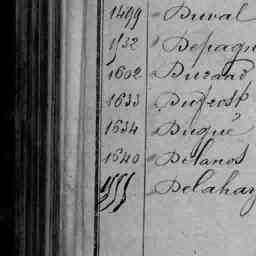 1499 " Duval
1532 " Depagn
1602 " Durand
1633 " Dufrost
1634 " Duqué
1640 " Delanos
1555 Delahay